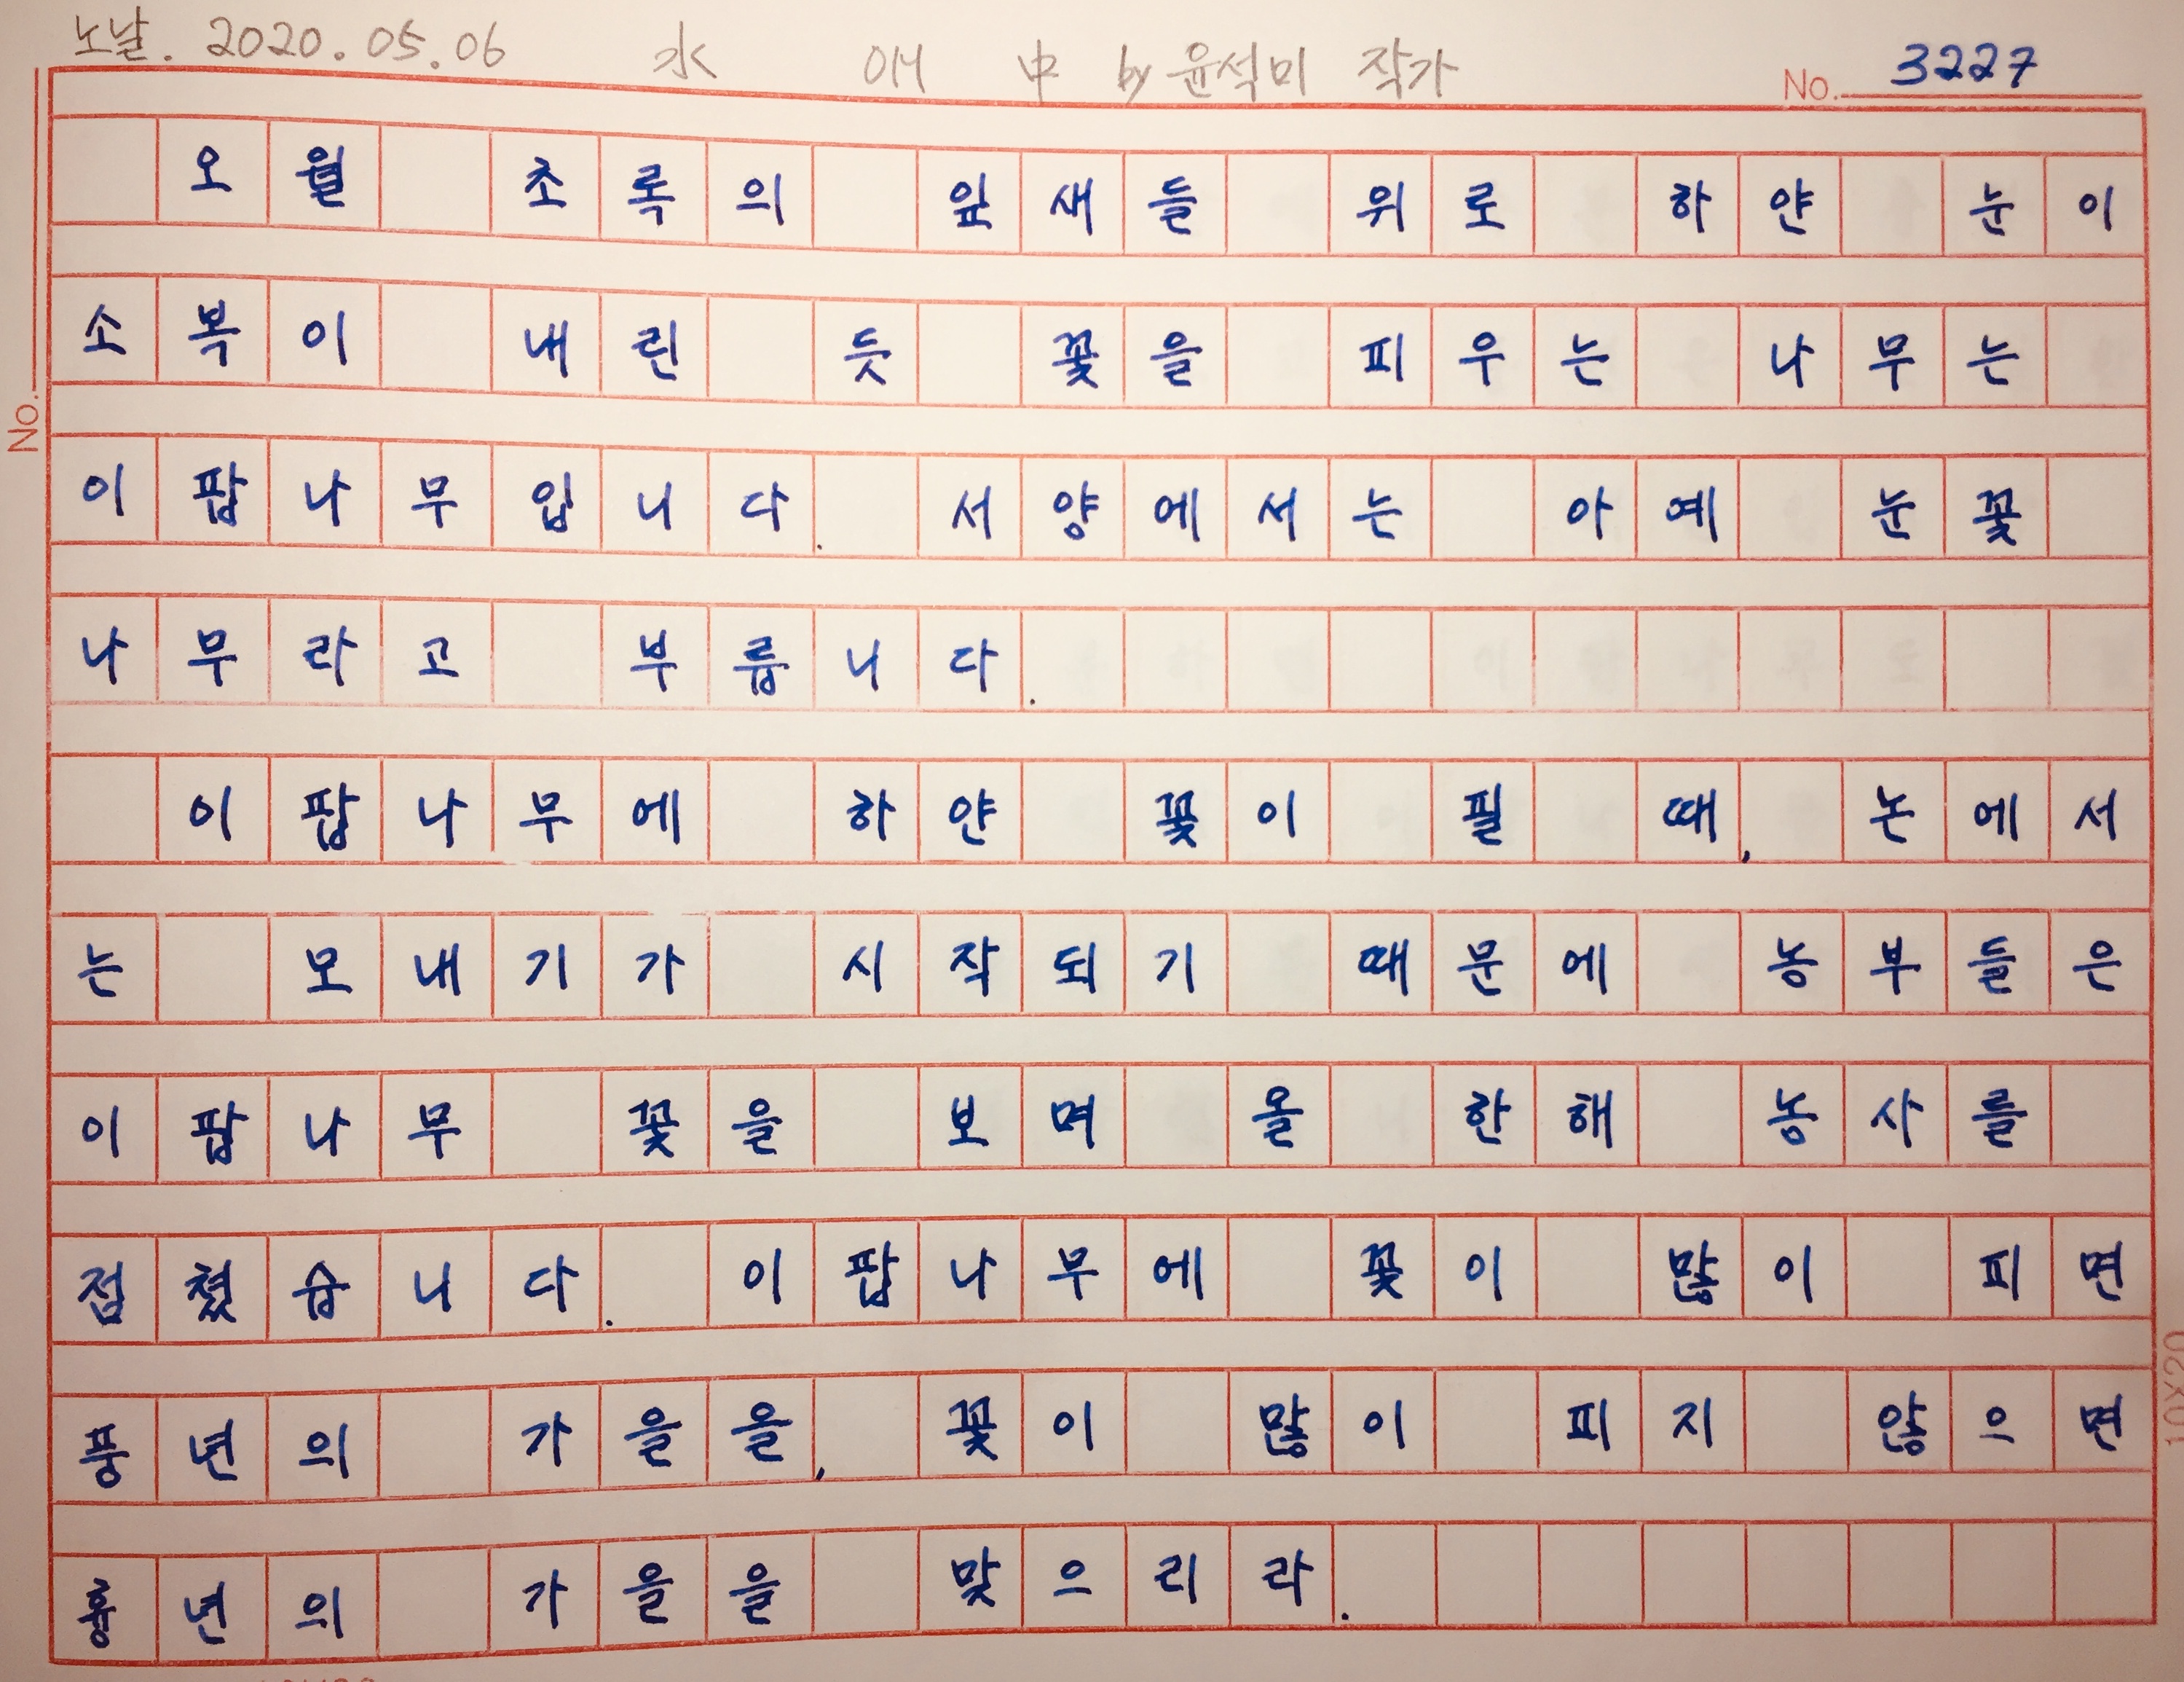 노날. 2020.05.06 水 애 中 by 윤석미 작가 No. 3227
오월 초록의 잎새들 위로 하얀 눈이
소복이 내린 듯 꽃을 피우는 나무는
No.
이팝나무입니다. 서양에서는 아예 눈꽃
나무라고 부릅니다.
이팝나무에 하얀 꽃이 필 때, 논에서
는 모내기가 시작되기 때문에 농부들은
이팝나무 꽃을 보며 올 한해 농사를
점쳤습니다. 이팝나무에 꽃이 많이 피면
풍년의 가을을, 꽃이 많이 피지 않으면
10X20
흉년의 가을을 맞으리라.